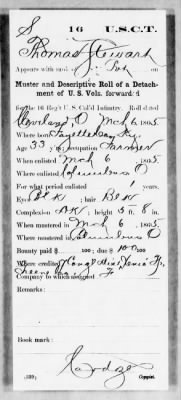 S 16 U.S.C.T.
Thomas Stewart
Appears with rank of Pvt on
Muster and Descriptive Roll of a Detach-
ment of U. S. Vols. forwarded
for the 16 Reg't U. S. Col'd Infantry. Roll dated
Cleveland, O Mch 6, 1865.
Where born Fayette Co, Ky.
Age 33 y'rs; occupation Farmer
When enlisted Mch 6, 1865.
Where enlisted Columbus O
For what period enlisted 1 years.
Eyes Blk; hair Blk
Complexion DK; height 5 ft. 8 in.
When mustered in Mch 6, 1865.
Where mustered in Columbus O
Bounty paid $ 100; due $ 100
Where credited
Greene Co
Company to which assigned
Remarks:
Book mark:
(339) Copyist.